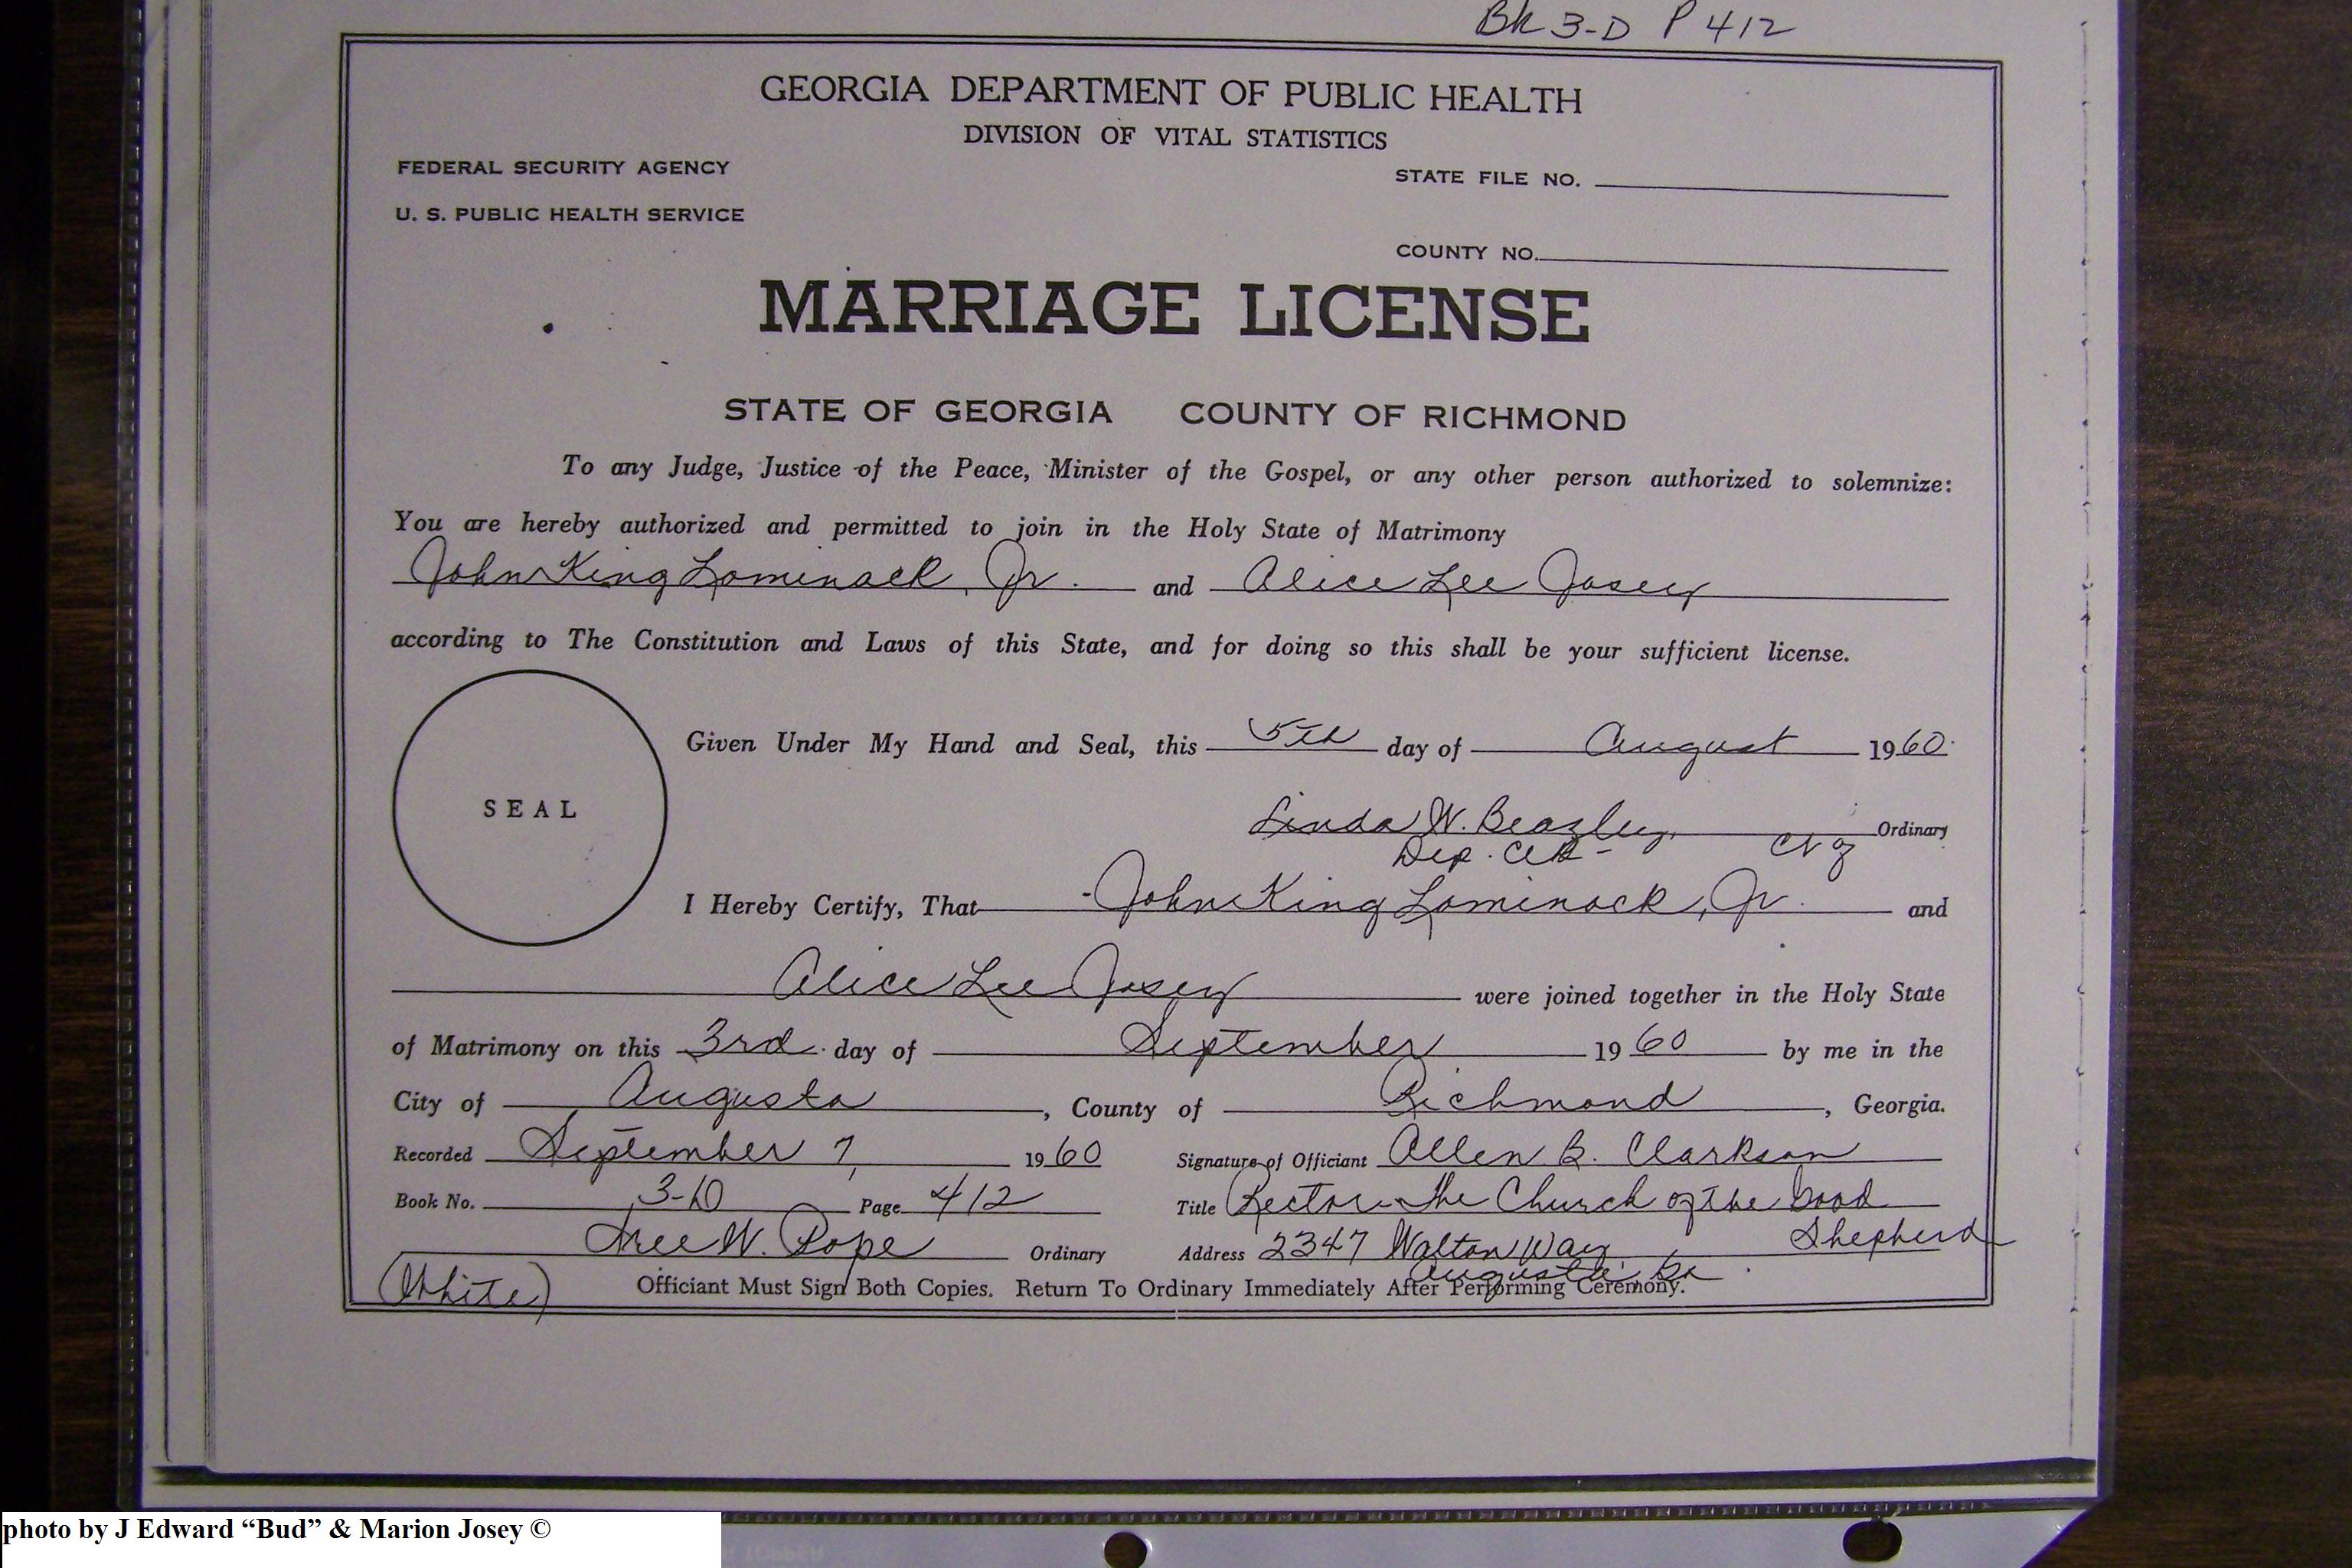 Bk 3-D P 412
GEORGIA DEPARTMENT OF PUBLIC HEALTH
DIVISION OF VITAL STATISTICS
FEDERAL SECURITY AGENCY
STATE FILE NO.
U. S. PUBLIC HEALTH SERVICE
COUNTY NO.
MARRIAGE LICENSE
STATE OF GEORGIA COUNTY OF RICHMOND
To any Judge, Justice of the Peace, Minister of the Gospel, or any other person authorized to solemnize:
You are hereby authorized and permitted to join in the Holy State of Matrimony
John King Lominack, Jr. and Alice Lee Josey
according to The Constitution and Laws of this State, and for doing so this shall be your sufficient license.
Given Under My Hand and Seal, this 5th day of August 1960.
SEAL
Linda W. Beazley, Ordinary
Dep. Clk-
I Hereby Certify, That John King Lominack, Jr. and
Alice Lee Josey were joined together in the Holy State
of Matrimony on this 3rd day of September 1960 by me in the
City of Augusta, County of Richmond, Georgia.
Recorded September 7, 1960 Signature of Officiant Allen B. Clarkson
Book No. 3-D Page 412 Title Rector-The Church of the Good
Shepherd
W. Pope Ordinary Address 2347 Walton Way
Augusta, Ga
(White) Officiant Must Sign Both Copies. Return To Ordinary Immediately After Performing Ceremony.
photo by J Edward “Bud” & Marion Josey ©